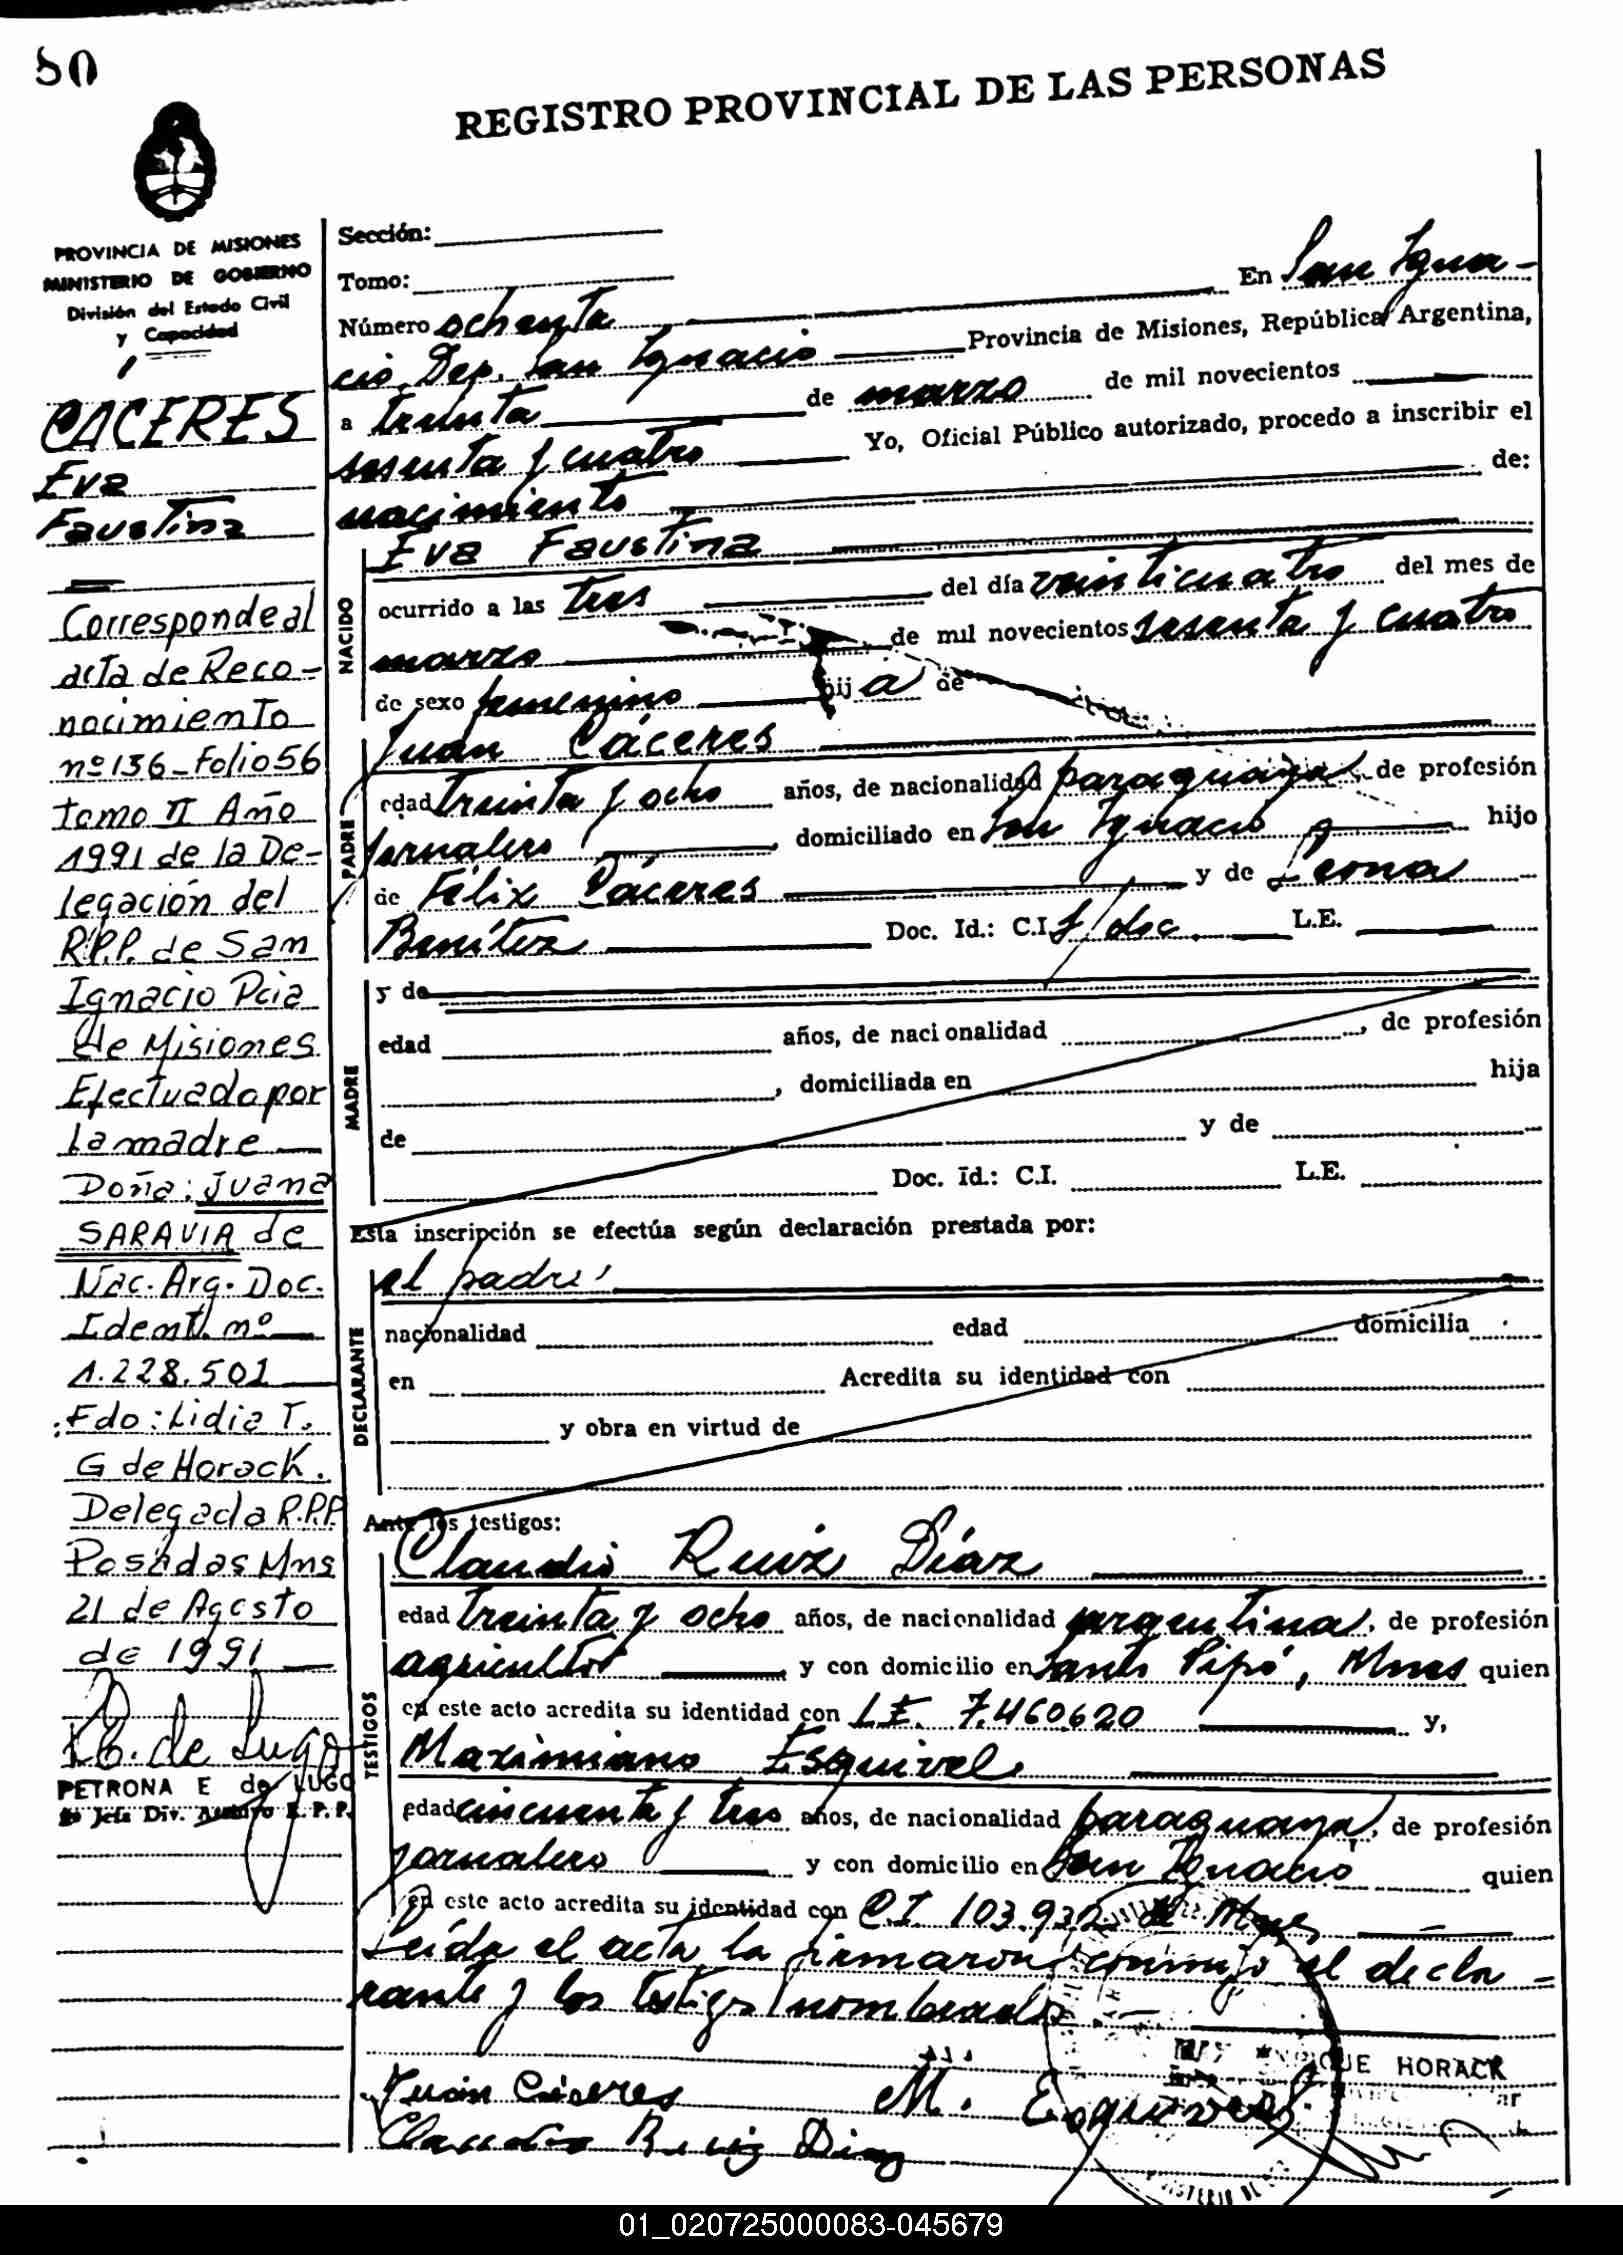 80
REGISTRO PROVINCIAL DE LAS PERSONAS
PROVINCIA DE MISIONES
MINISTERIO DE GOBIERNO
División del Estado Civil
y Capacidad
CACERES
Eva
Faustina
Corresponde al
acta de Reco-
nocimiento
nº 136-Folio 56
tomo II Año
1991 de la De-
legación del
R.P.P. de San
Ignacio Pcia
de Misiones
Efectuado por
La madre
Doña: Juana
SARAVIA de
Nac. Arg. Doc.
Ident. nº
1.228.501
Fdo: Lidia T.
G de Horack.
Delegada R.P.P
Posadas Mns
21 de Agosto
de 1991
de Lugo
PETRONA E de LUGO
Jefa Div. Archivo R. P. P.
Sección:
Tomo:
Número ochenta En San Igna-
cio, Dep. San Ignacio Provincia de Misiones, República Argentina,
a treinta de marzo de mil novecientos
sesenta y cuatro Yo, Oficial Público autorizado, procedo a inscribir el
nacimiento de:
NACIDO
Eva Faustina
ocurrido a las tres del día veinticuatro del mes de
marzo de mil novecientos sesenta y cuatro
de sexo femenino hija de
PADRE
Juan Cáceres
edad treinta y ocho años, de nacionalidad paraguaya, de profesión
jornalero, domiciliado en San Ignacio hijo
de Félix Cáceres y de Leona
Benítez Doc. Id.: C.I. s/doc. L.E.
MADRE
y de
edad años, de nacionalidad , de profesión
, domiciliada en hija
de y de
Doc. Id.: C.I. L.E.
Esta inscripción se efectúa según declaración prestada por:
DECLARANTE
el padre
nacionalidad edad domicilia
en Acredita su identidad con
y obra en virtud de
Ante los testigos:
TESTIGOS
Claudio Ruiz Díaz
edad treinta y ocho años, de nacionalidad argentina, de profesión
agricultor y con domicilio en Santo Pipó, Mnes quien
en este acto acredita su identidad con L.E. 7.460.620 y,
Maximiano Esquivel
edad cincuenta y tres años, de nacionalidad paraguaya, de profesión
jornalero y con domicilio en San Ignacio quien
en este acto acredita su identidad con C.I. 103.932 de Mnes
Leída el acta la firmaron conmigo el decla-
rante y los testigos nombrados
ENRIQUE HORACK
Juan Cáceres M. Esquivel
Claudio Ruiz Diaz
01_020725000083-045679